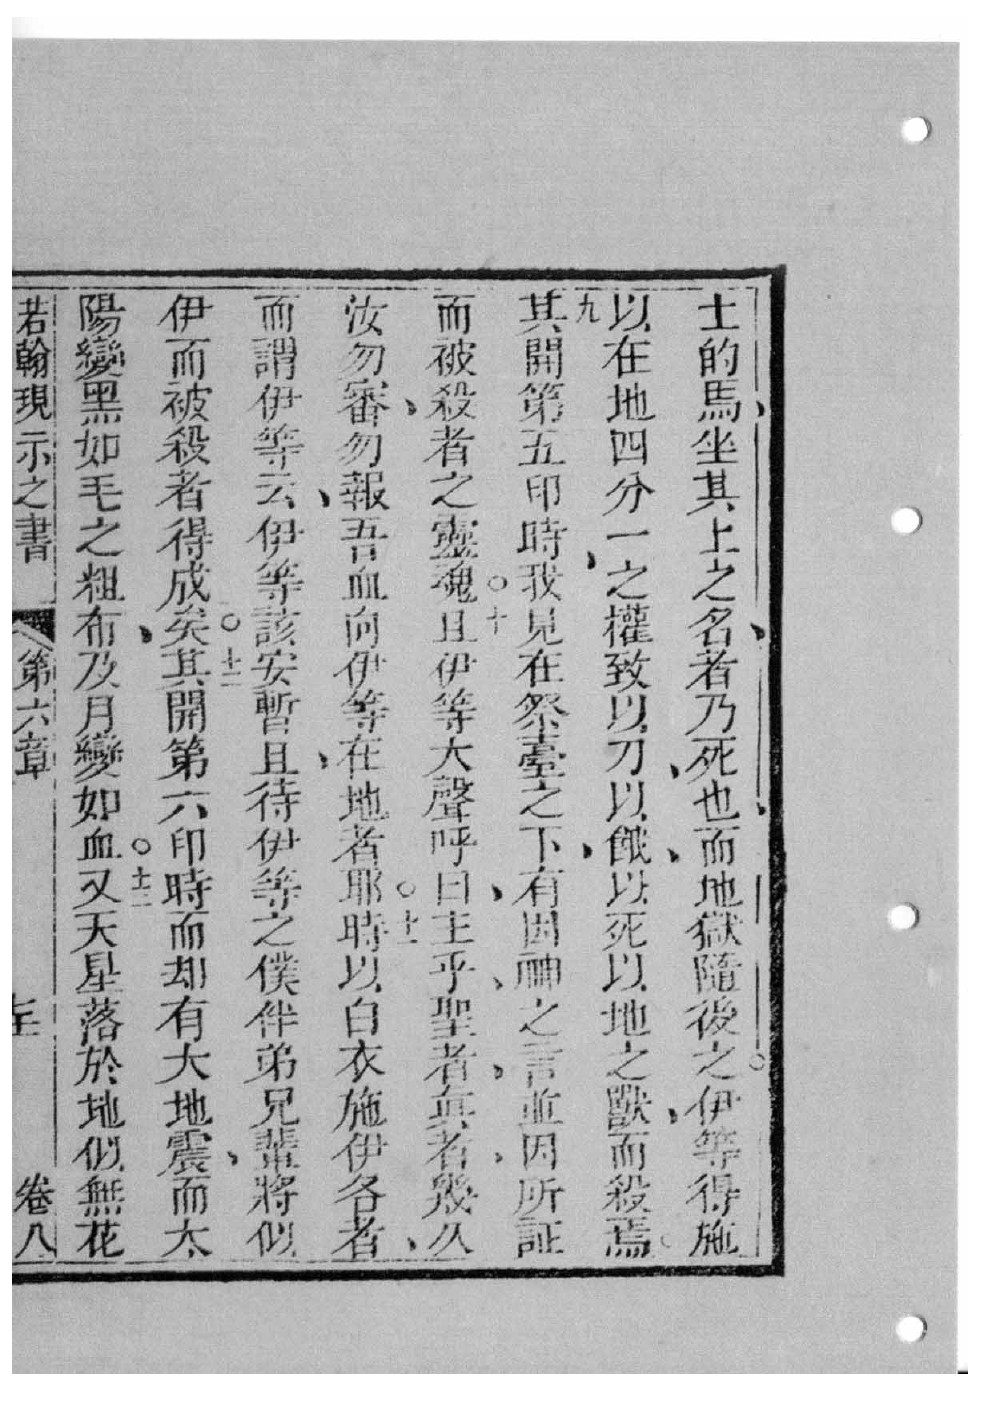 士的馬、坐其上之名者、乃死也、而地獄隨後之。伊等得施
以在地四分一之權致以刀、以餓、以死以地之獸、而殺焉。
九其開第五印時、我見在祭臺之下、有因神之言並因所証
而被殺者之靈魂。十且伊等大聲呼曰、主乎、聖者、眞者、幾久
汝勿審、勿報吾血向伊等在地者耶。十一時以白衣施伊各者、
而謂伊等云、伊等該安暫且、待伊等之僕伴弟兄輩將似
伊而被殺者得成矣。十二其開第六印時而却有大地震、而太
陽變黑如毛之粗布、及月變如血。十三又天星落於地似無花
若翰現示之書 第六章 卷八